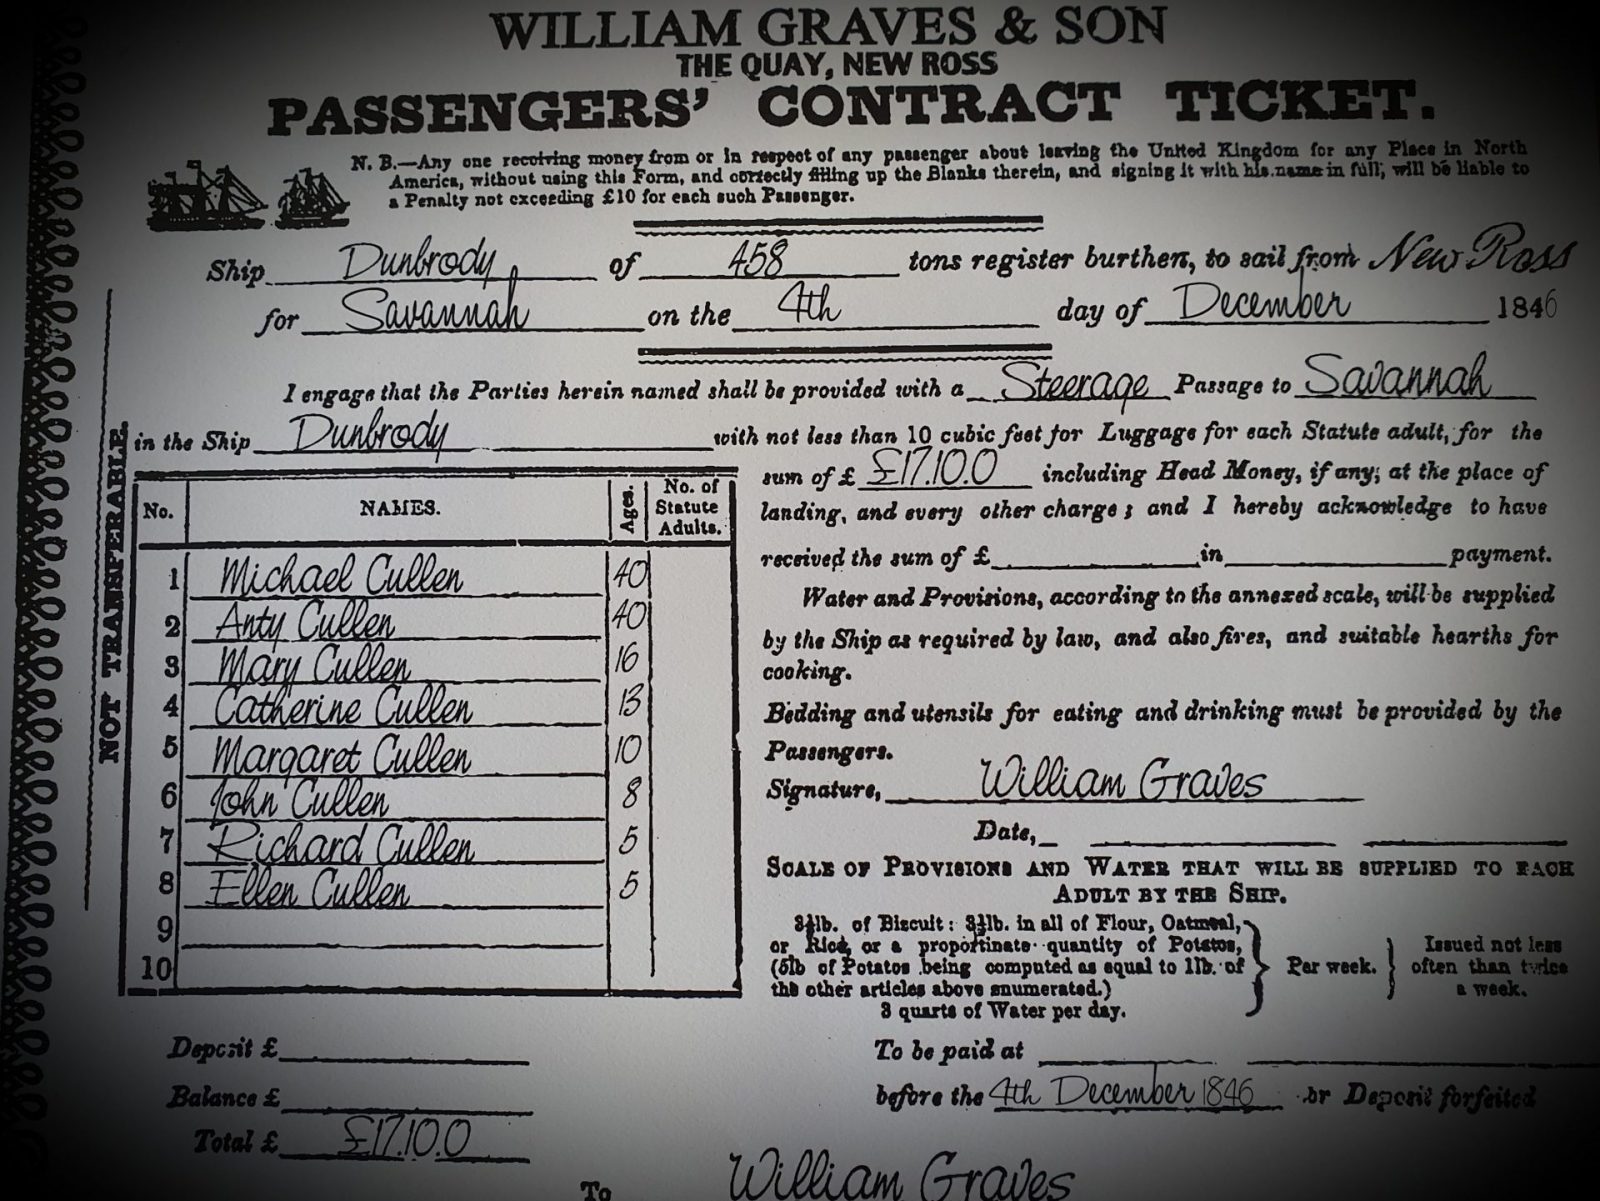 WILLIAM GRAVES & SON
THE QUAY, NEW ROSS
PASSENGERS' CONTRACT TICKET.
N. B.—Any one receiving money from or in respect of any passenger about leaving the United Kingdom for any Place in North
America, without using this Form, and correctly filling up the Blanks therein, and signing it with his name in full, will be liable to
a Penalty not exceeding £10 for each such Passenger.
Ship Dunbrody of 458 tons register burthen, to sail from New Ross
for Savannah on the 4th day of December 1846
I engage that the Parties herein named shall be provided with a Steerage Passage to Savannah
in the Ship Dunbrody with not less than 10 cubic feet for Luggage for each Statute adult, for the
sum of £ £17.10.0 including Head Money, if any, at the place of
landing, and every other charge; and I hereby acknowledge to have
received the sum of £ in payment.
Water and Provisions, according to the annexed scale, will be supplied
by the Ship as required by law, and also fires, and suitable hearths for
cooking.
Bedding and utensils for eating and drinking must be provided by the
Passengers.
Signature, William Graves
Date,
NOT TRANSFERABLE.
No. NAMES. Ages. No. of Statute Adults.
1 Michael Cullen 40
2 Anty Cullen 40
3 Mary Cullen 16
4 Catherine Cullen 13
5 Margaret Cullen 10
6 John Cullen 8
7 Richard Cullen 5
8 Ellen Cullen 5
9
10
SCALE OF PROVISIONS AND WATER THAT WILL BE SUPPLIED TO EACH
ADULT BY THE SHIP.
3½lb. of Biscuit: 3½lb. in all of Flour, Oatmeal,
or Rice, or a proportinate quantity of Potatos,
(5lb of Potatos being computed as equal to 1lb. of
the other articles above enumerated.)
3 quarts of Water per day.
Per week.
Issued not less
often than twice
a week.
Deposit £
Balance £
Total £ £17.10.0
To be paid at
before the 4th December 1846 or Deposit forfeited
To William Graves